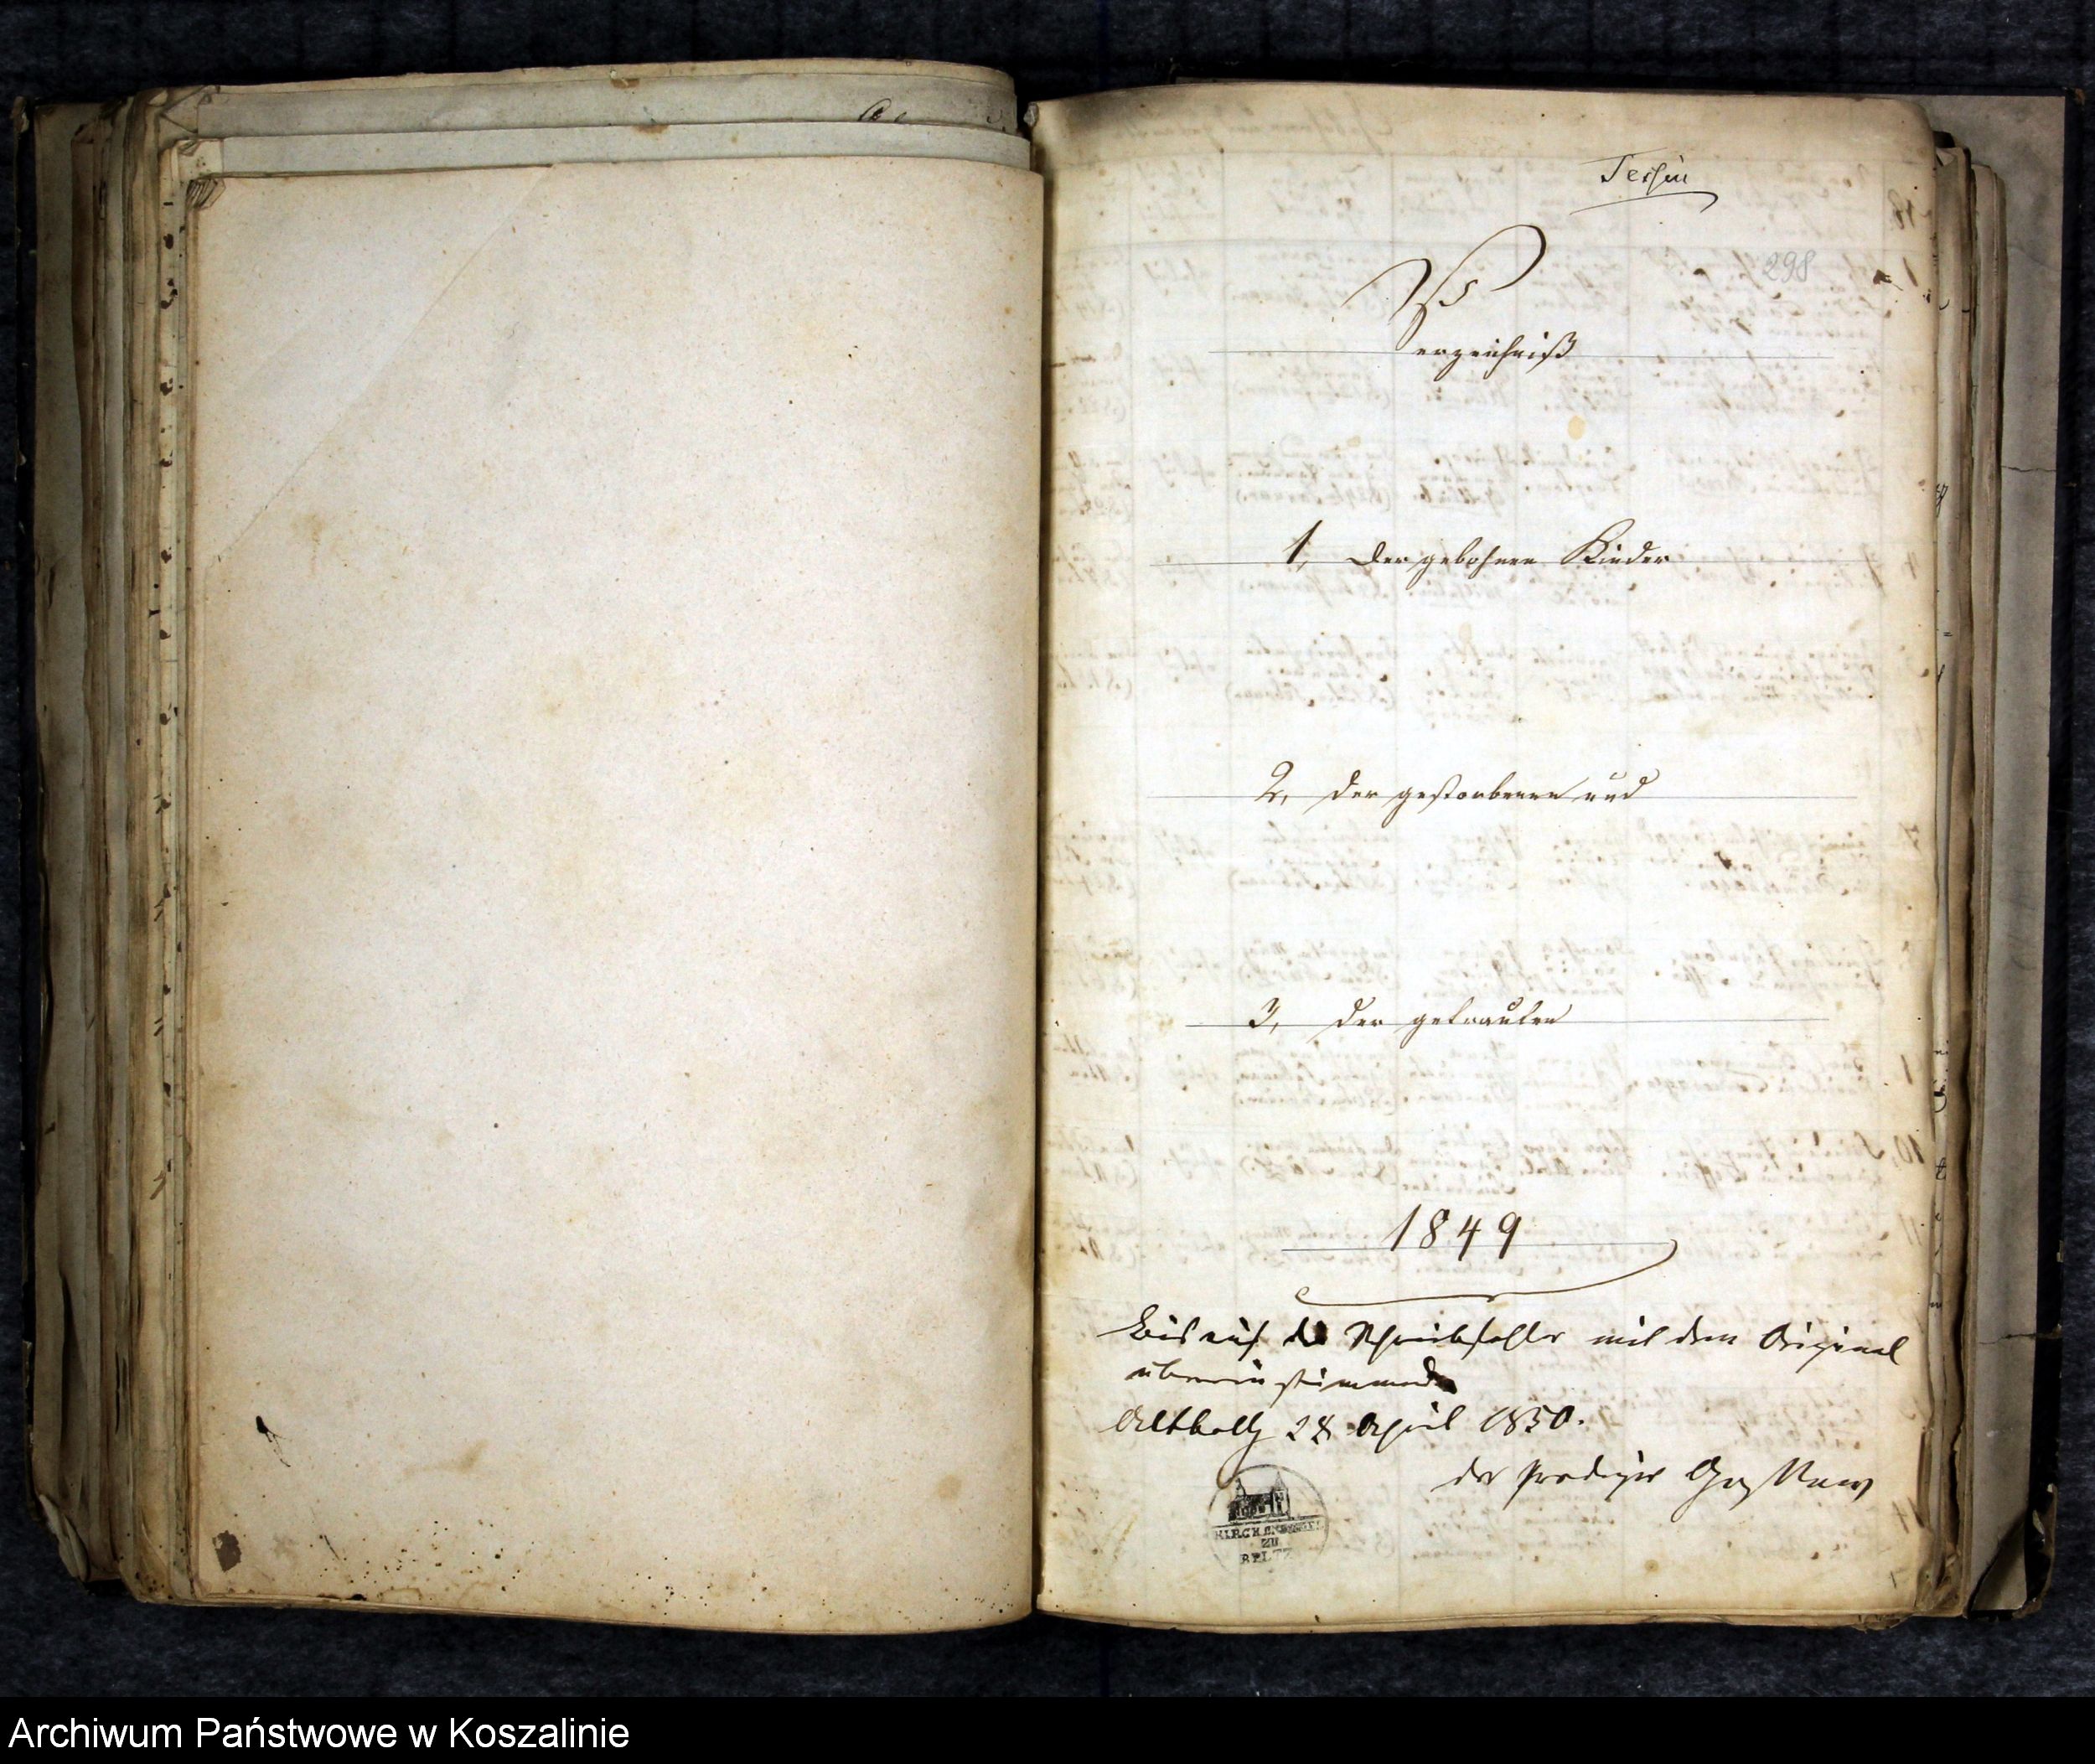 Tessin
298
Verzeichniß
1, der gebohrnen Kinder
2, der gestorbenen und
3, der getrauten
1849
Bis auf die Schreibfehler mit dem Original
übereinstimmend
Altbeltz 28 April 1850.
der Prediger
KIRCHENSIEGEL
ZU
BELTZ
Archiwum Państwowe w Koszalinie